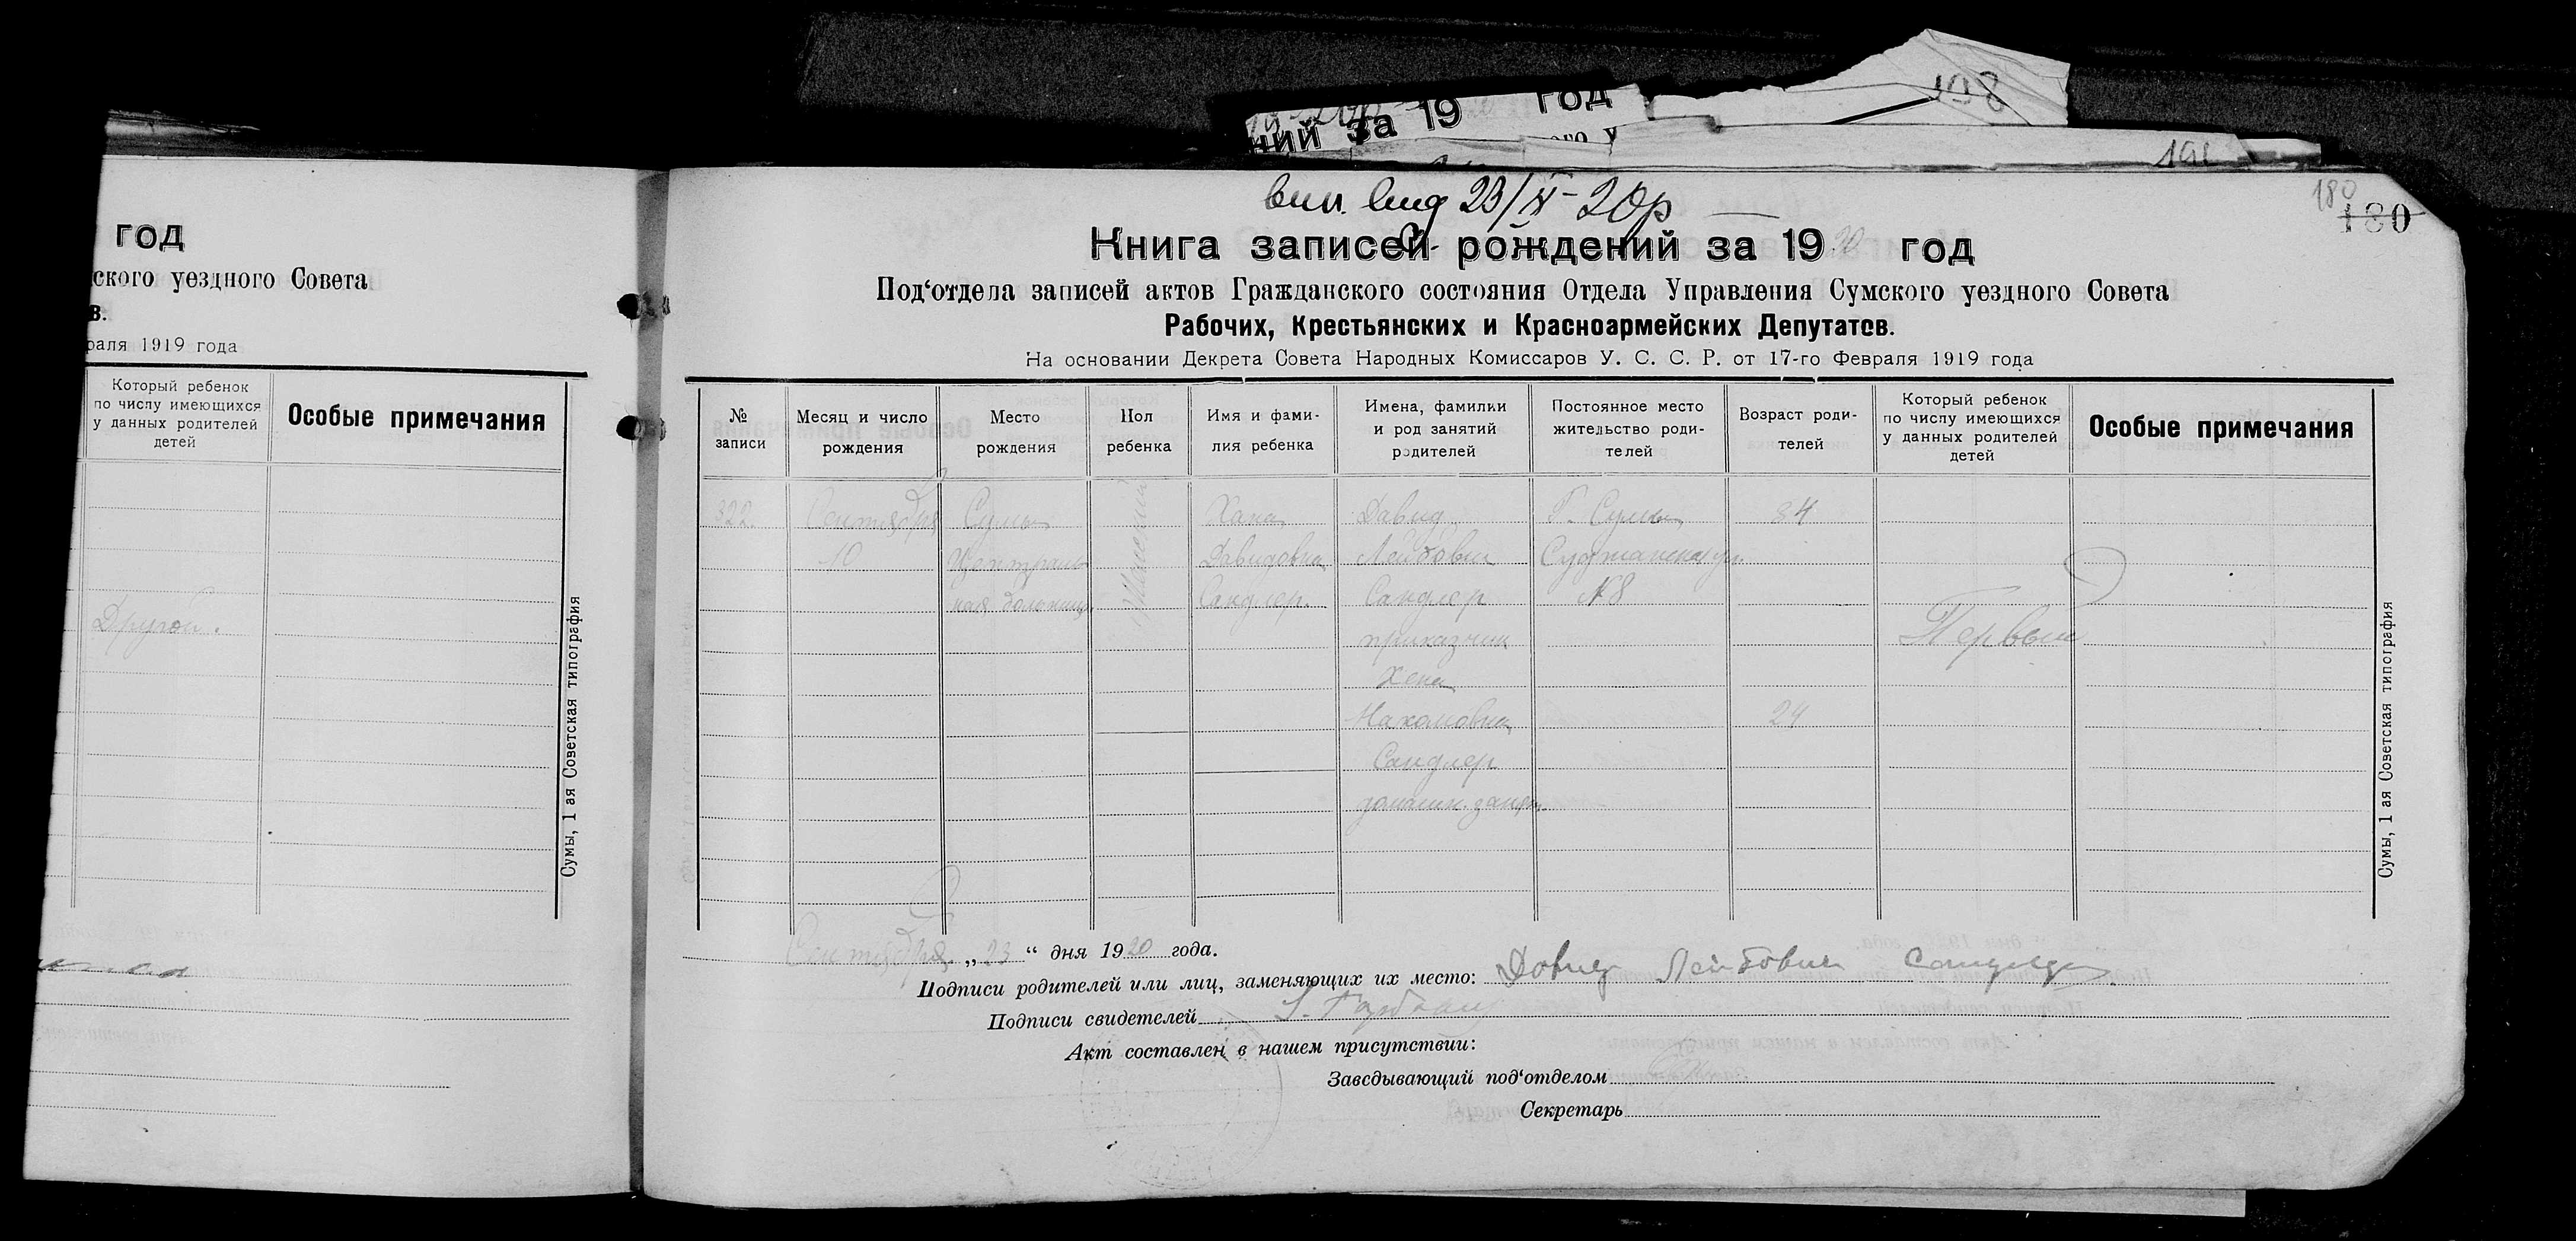 ний за 19 год
198
180
180
год
ского уездного Совета
в.
раля 1919 года
Который ребенок
по числу имеющихся
у данных родителей
детей
Особые примечания
Другой.
Сумы, 1 ая Советская типография
23/IX-20р
Книга записей рождений за 1920 год
Под‘отдела записей актов Гражданского состояния Отдела Управления Сумского уездного Совета
Рабочих, Крестьянских и Красноармейских Депутатов.
На основании Декрета Совета Народных Комиссаров У. С. С. Р. от 17-го Февраля 1919 года
№
записи
Месяц и число
рождения
Место
рождения
Пол
ребенка
Имя и фами-
лия ребенка
Имена, фамилии
и род занятий
родителей
Постоянное место
жительство роди-
телей
Возраст роди-
телей
Который ребенок
по числу имеющихся
у данных родителей
детей
Особые примечания
322.
Сентября
10
Сумы
Централь
ная больница
Женский
Хана
Давидовна
Сандлер.
Давид
Лейбович
Сандлер
приказчик
Хена
Нахамовна
Сандлер
домашн. занят.
Г. Сумы
Суджанская ул.
№8
34
24
Первый
Сумы, 1 ая Советская типография
Сентября „23“ дня 1920 года.
Подписи родителей или лиц, заменяющих их место: Довид Лейбович Сандлер
Подписи свидетелей
Акт составлен в нашем присутствии:
Заведывающий под‘отделом
Секретарь